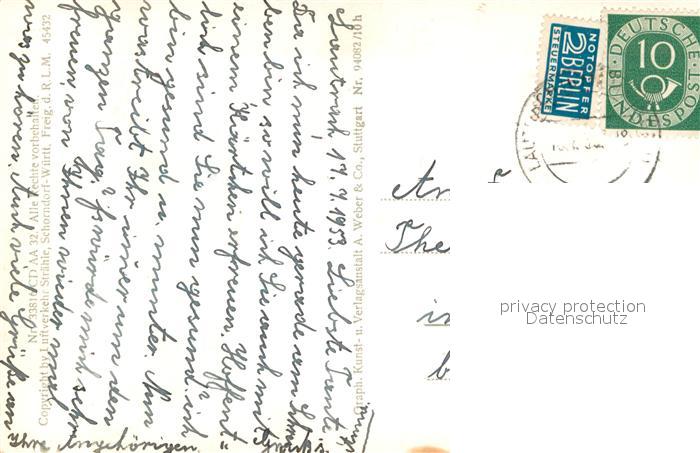 Lautrach 17.7.1953. Liebste Tante
Da ich nun heute gerade am
ben bin, so will ich Sie auch mit
einem Kärtchen erfreuen. Hoffent"
lich sind Sie nun gesund? ich
bin gesund u. munter. Nun
was treibt Ihr immer um den
ganzen Tag? Ich würde mich sehr
freuen, von Ihnen wieder mal
was zu hören. Auch viele Grüße an
Ihre Angehörigen.
Nr. 33816 CD AA 32. Alle Rechte vorbehalten.
Copyright by Luftverkehr Strähle, Schorndorf-Württ. Freig. d. R. L. M. 45432
Graph. Kunst- u. Verlagsanstalt A. Weber & Co., Stuttgart Nr. 94082/10 h
NOTOPFER
2 BERLIN
STEUERMARKE
DEUTSCHE
10
BUNDESPOST
LAUT
An
The
in
privacy protection
Datenschutz